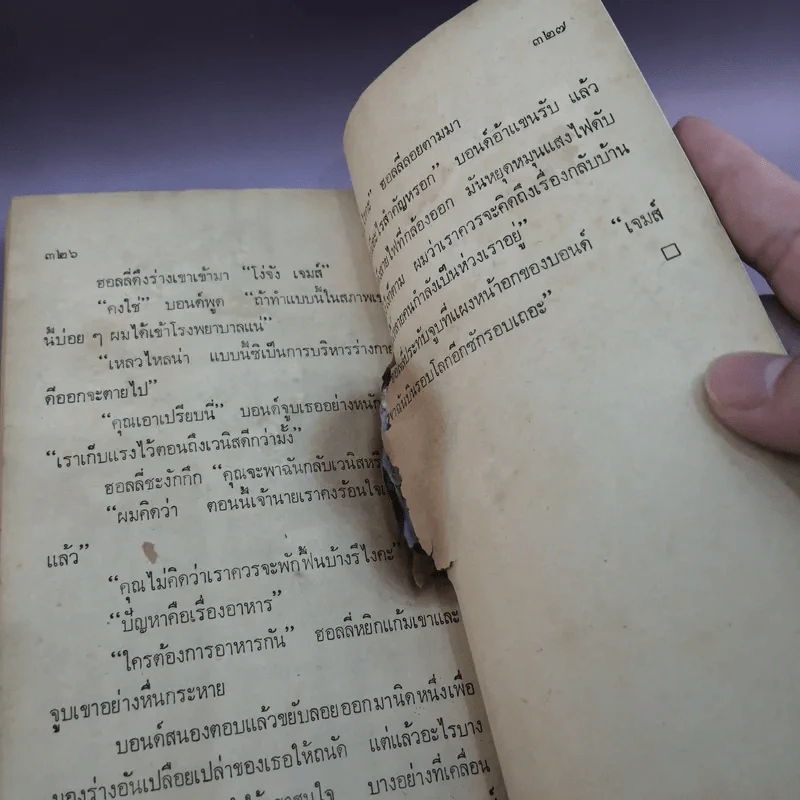 ๓๒๖
ฮอลลี่ดึงร่างเขาเข้ามา “โง่จัง เจมส์”
“คงใช่” บอนด์พูด “ถ้าทำแบบนี้ในสภาพ
นี้บ่อย ๆ ผมได้เข้าโรงพยาบาลแน่”
“เหลวไหลน่า แบบนี้ซิเป็นการบริหารร่างกาย
ดีออกจะตายไป”
“คุณเอาเปรียบนี่” บอนด์จูบเธออย่างหนัก
“เราเก็บแรงไว้ตอนถึงเวนิสดีกว่ามั้ง”
ฮอลลี่ชะงักกึก “คุณจะพาฉันกลับเวนิส
“ผมคิดว่า ตอนนี้เจ้านายเราคงร้อนใจ
แล้ว”
“คุณไม่คิดว่าเราควรจะพักฟื้นบ้างรึไงคะ”
“ปัญหาคือเรื่องอาหาร”
“ใครต้องการอาหารกัน” ฮอลลี่หยิกแก้มเขาและ
จูบเขาอย่างหื่นกระหาย
บอนด์สนองตอบแล้วขยับลอยออกมานิดหนึ่งเพื่อ
มองร่างอันเปลือยเปล่าของเธอให้ถนัด แต่แล้วอะไรบาง
บางอย่างที่เคลื่อน
๓๒๗
ฮอลลี่ลอยตามมา
บอนด์อ้าแขนรับ แล้ว
ที่กล้องออก มันหยุดหมุนแสงไฟดับ
ผมว่าเราควรจะคิดถึงเรื่องกลับบ้าน
คนกำลังเป็นห่วงเราอยู่”
ประทับจูบที่แผงหน้าอกของบอนด์ “เจมส์
ฉันบินรอบโลกอีกซักรอบเถอะ”